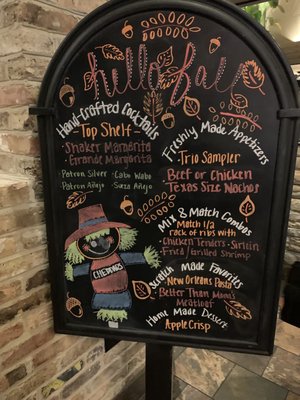 hello fall
Hand-Crafted Cocktails
Top Shelf
• Shaker Margarita
• Grande Margarita
• Patron Silver • Cabo Wabo
• Patron Añejo • Suaza Añejo
Freshly Made Appetizers
• Trio Sampler
• Beef or Chicken
Texas Size Nachos
Mix & Match Combos
Match 1/2
rack of ribs with
• Chicken Tenders • Sirloin
• Fried / Grilled Shrimp
Scratch Made Favorites
• New Orleans Pasta
• Better Than Mom's
Meatloaf
Home Made Dessert
Apple Crisp
CHEDDARS